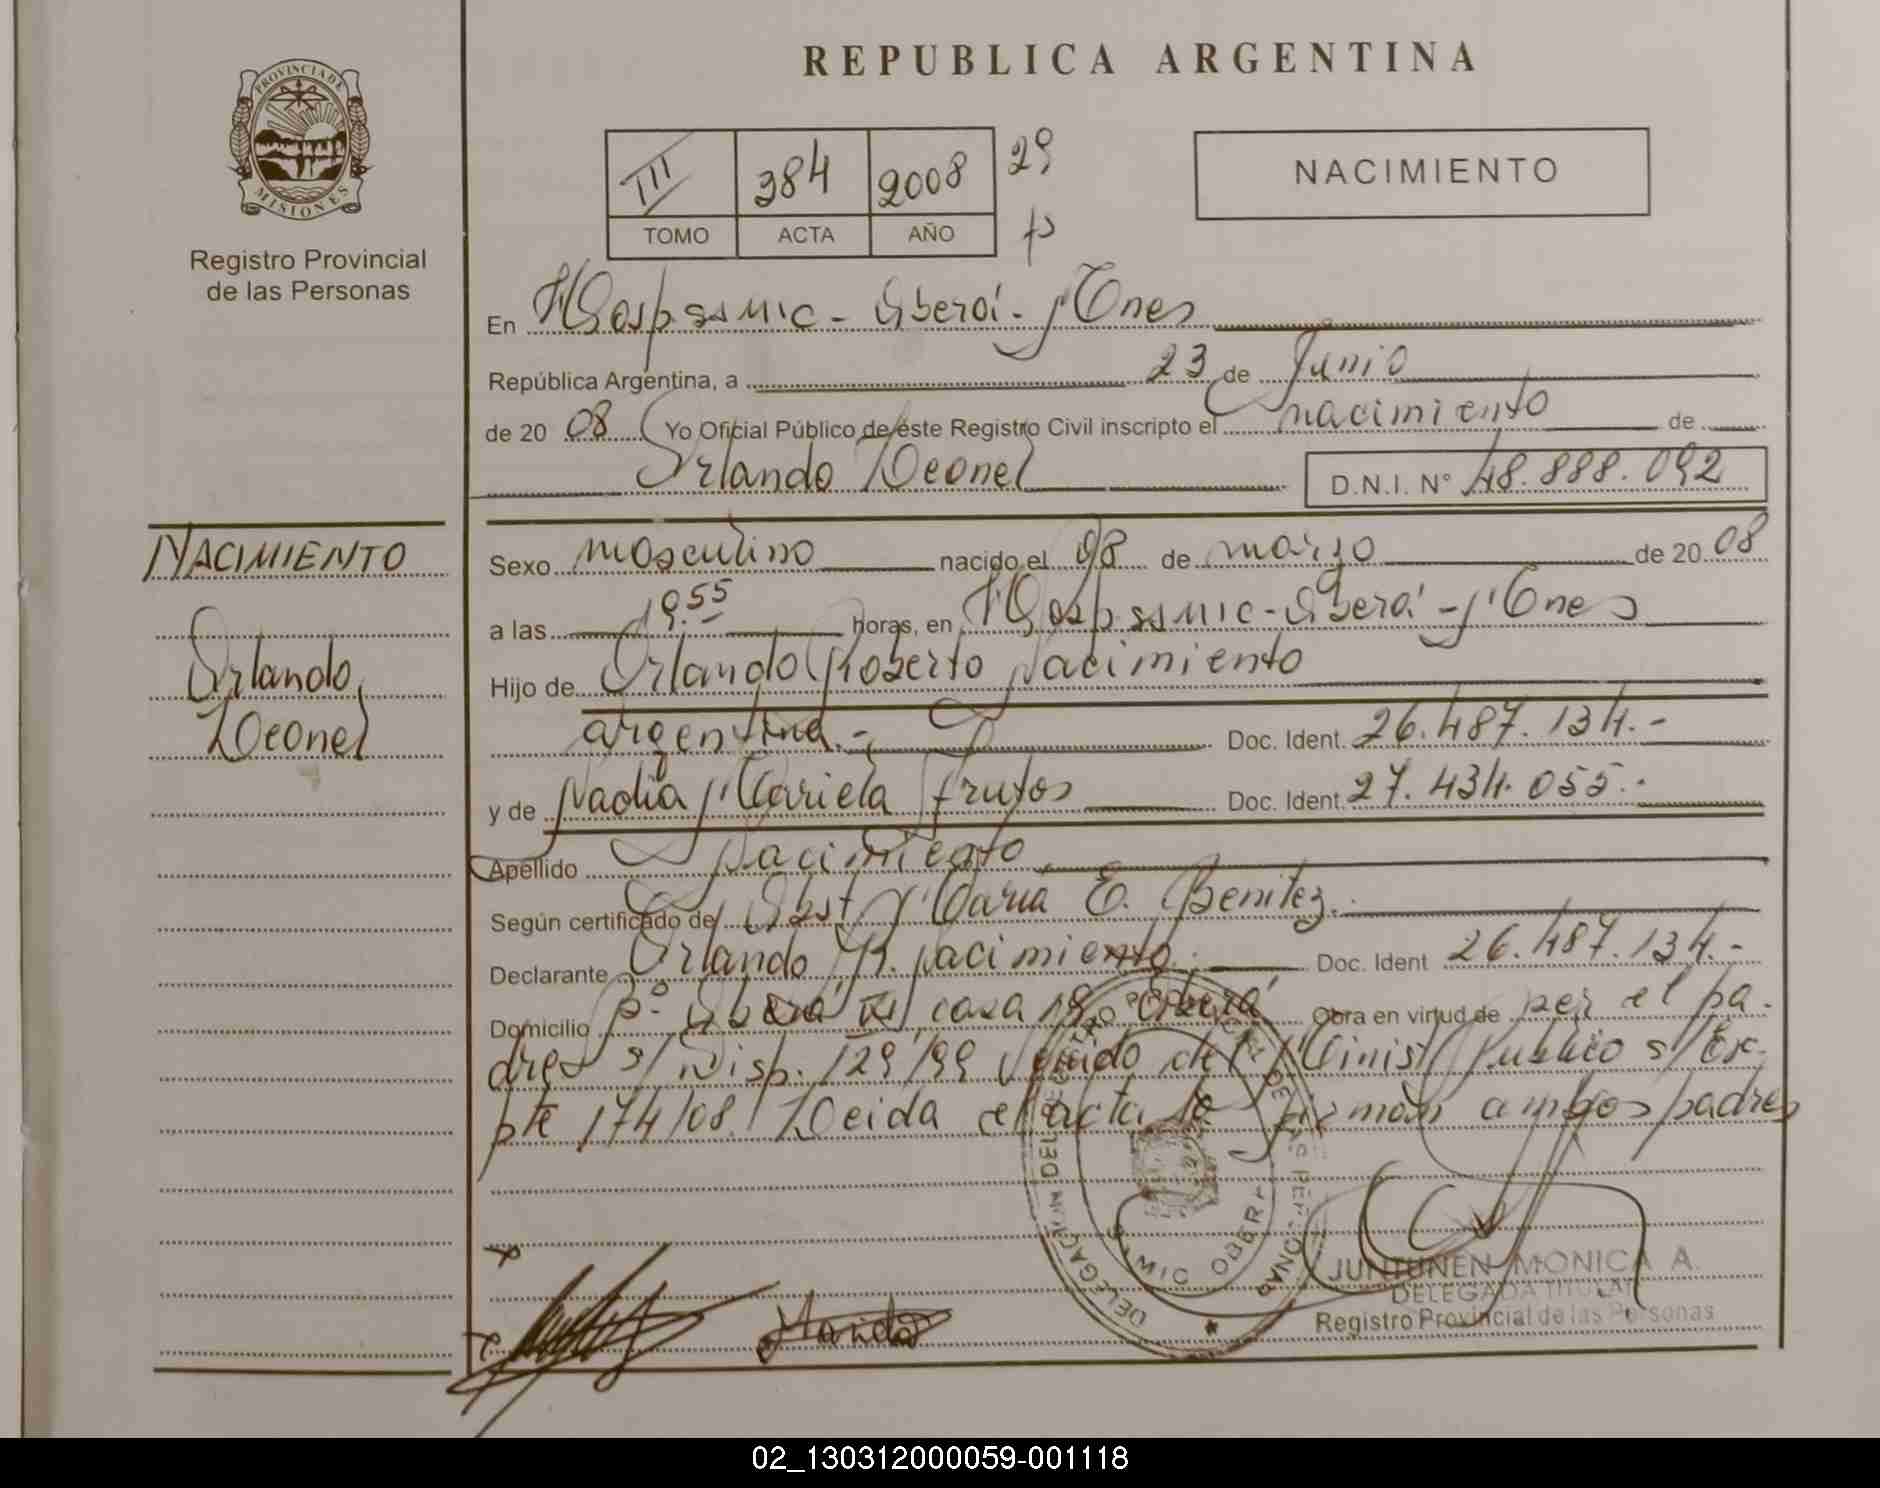 REPUBLICA ARGENTINA
PROVINCIA DE
MISIONES
Registro Provincial
de las Personas
III 384 2008 29
TOMO ACTA AÑO fs
NACIMIENTO
En Hosp. SSMIC - Oberá - M'Ones
República Argentina, a 23 de Junio
de 2008 Yo Oficial Público de éste Registro Civil inscripto el nacimiento de
Orlando Leonel D.N.I. N° 48.888.092
NACIMIENTO
Orlando
Leonel
Sexo masculino nacido el 08 de marzo de 2008
a las 19.55 horas, en Hosp. SSMIC - Oberá - M'Ones
Hijo de Orlando Roberto Nacimiento
argentina.- Doc. Ident. 26.487.134.-
y de Nadia Mariela Frutos Doc. Ident. 27.434.055.-
Apellido Nacimiento
Según certificado de Obst. María E. Benitez.
Declarante Orlando R. Nacimiento. Doc. Ident 26.487.134.-
Domicilio Bº Oberá VI casa 19 Oberá Obra en virtud de ser el pa-
dre s/ Disp. 129/99 venido del Minist Público s/ Ex-
pte 174/08. Leida el acta la firman ambos padres
DELEGACION
SAMIC OBERA
JUNTUNEN MONICA A.
DELEGADA TITULAR
Registro Provincial de las Personas
02_130312000059-001118